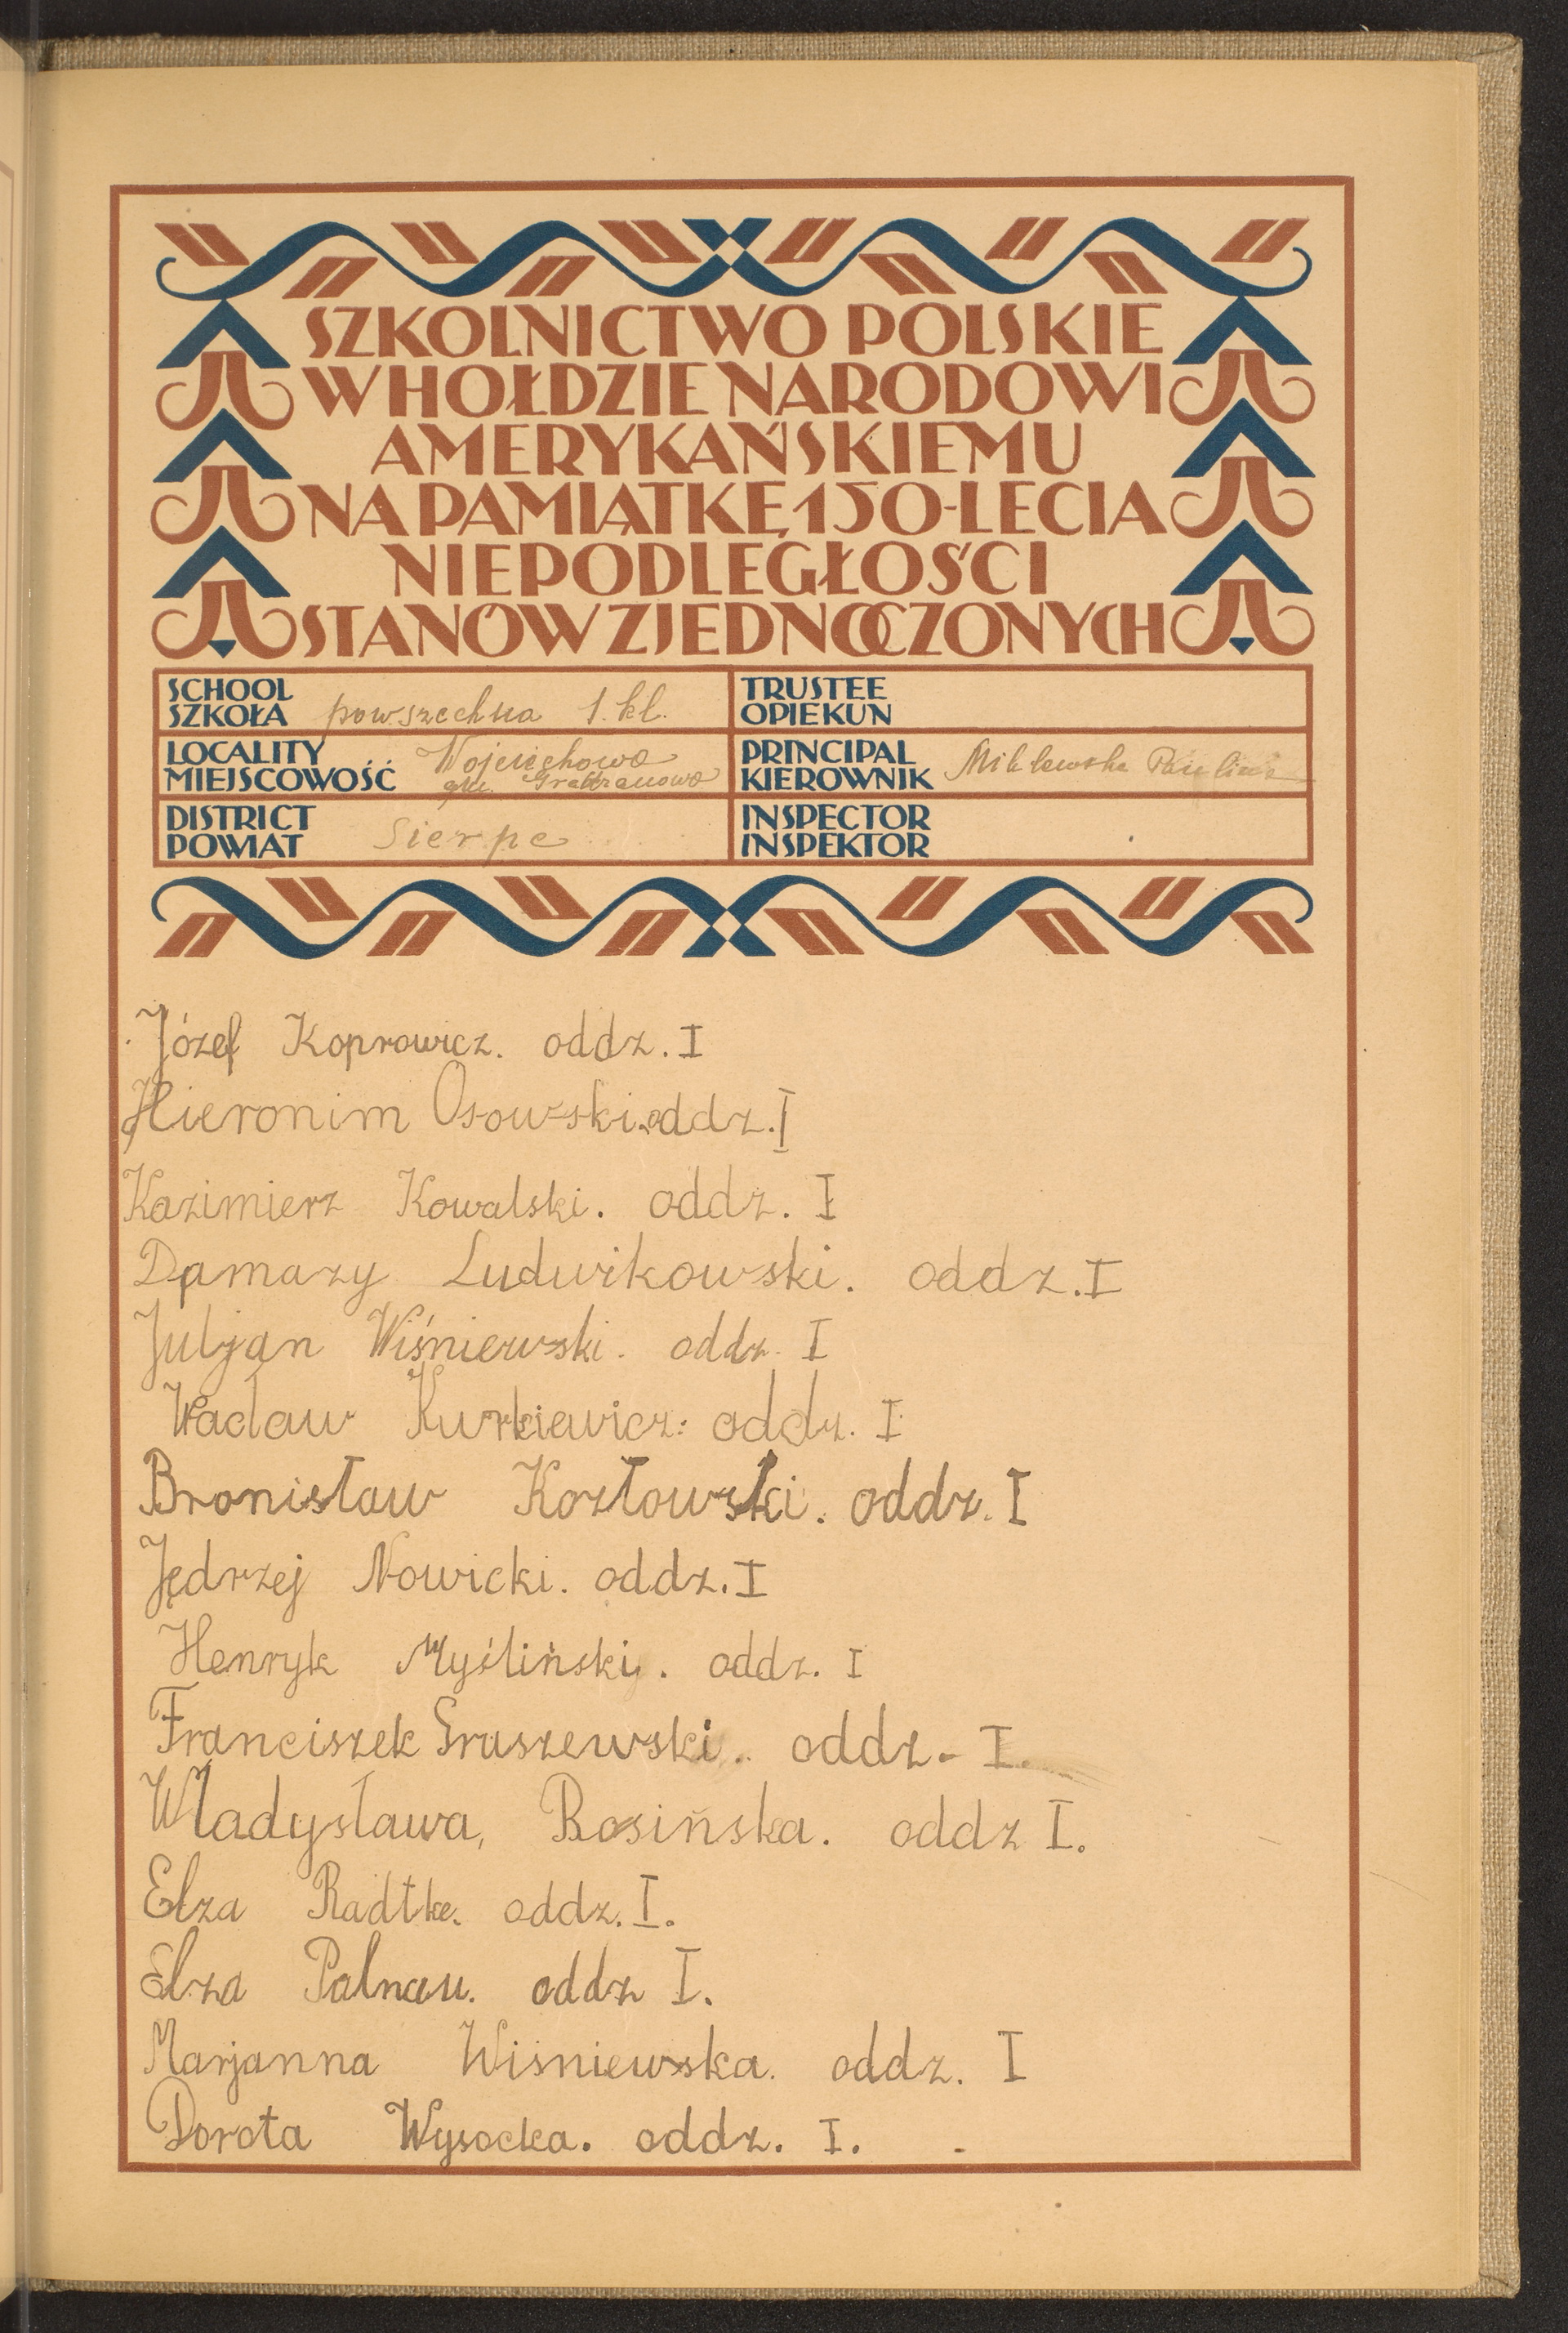 SZKOLNICTWO POLSKIE
W HOŁDZIE NARODOWI
AMERYKAŃSKIEMU
NA PAMIĄTKĘ 150-LECIA
NIEPODLEGŁOŚCI
STANÓW ZJEDNOCZONYCH
SCHOOL
SZKOŁA powszechna 1. kl.
TRUSTEE
OPIEKUN
LOCALITY
MIEJSCOWOŚĆ Wojciechowo
gm.
PRINCIPAL
KIEROWNIK Paulina
DISTRICT
POWIAT Sierpc
INSPECTOR
INSPEKTOR
Józef Koprowicz. oddz. I
Hieronim Osowski. oddz. I
Kazimierz Kowalski. oddz. I
Damazy Ludwikowski. oddz. I
Juljan Wiśniewski. oddz. I
Wacław Kurkiewicz. oddz. I
Bronisław Kozłowski. oddz. I
Jędrzej Nowicki. oddz. I
Henryk Myśliński. oddz. I
Franciszek Graszewski. oddz- I.
Władysława, Rosińska. oddz I.
Elza Radtke. oddz. I.
Elza Palnau. oddz I.
Marjanna Wiśniewska. oddz. I
Dorota Wysocka. oddz. I.